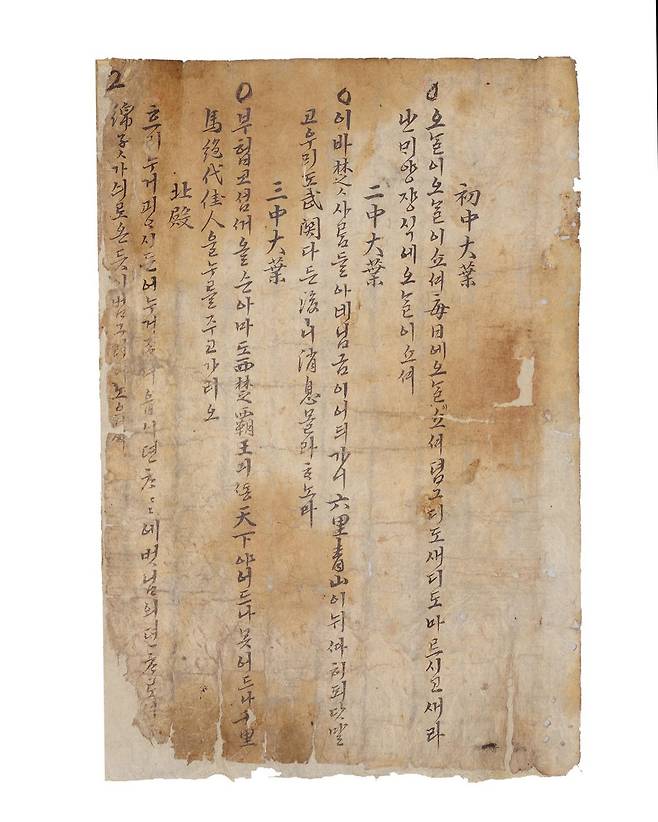 初中大葉
오ᄂᆞᆯ이오ᄂᆞᆯ이쇼셔每日에오ᄂᆞᆯ이쇼셔뎜그디도새디도마르시고새라
난미양쟝식에오ᄂᆞᆯ이쇼셔
二中大葉
이바楚ㅅ사ᄅᆞᆷ들아네님금이어듸가니六里靑山이뉘ᄯᅡ히되닷말
고우리도武關다든後니消息몰라ᄒᆞ노라
三中大葉
부헙코섬ᄭᅥ올슨아마도西楚覇王긔ᄯᅩᆼ天下야어드나못어드나千里
馬絶代佳人을누를주고가리오
北殿
흐리누거괴시든어누거 에벗님의뎐ᄎᆞ로셔
綿子ㅅ가싀로온듯이범그려
2